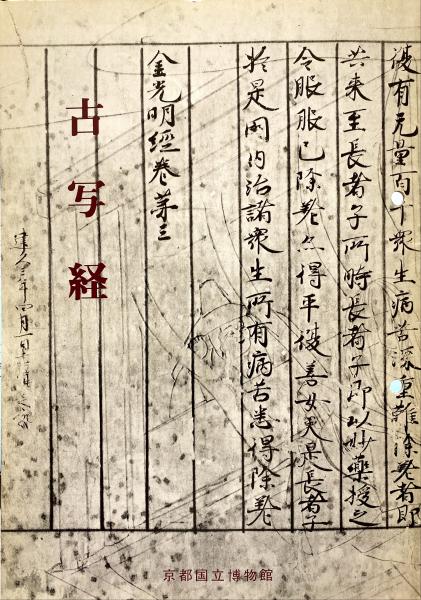 復有无量百千衆生病苦深重難除差者即
共来至長者子所時長者子即以妙藥授之
令服服已除差亦得平復善女天是長者子
於是国内治諸衆生所有病苦悉得除差
金光明經卷第三
古写経
建久三年四月一日
京都国立博物館